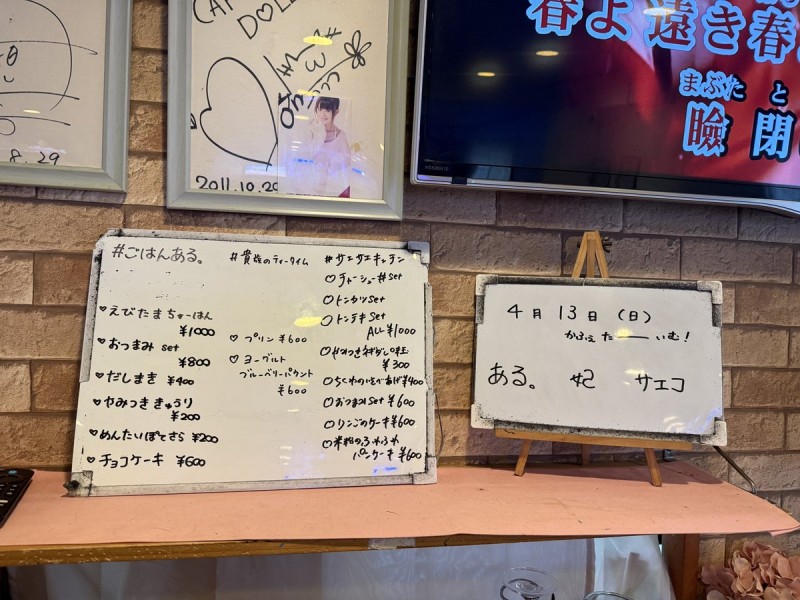 8.29
DOLL
2011.10.20
春よ 遠き春
まぶた と
瞼 閉
#ごはんある。
♡えびたまちゃーはん
¥1000
♡おつまみ set
¥800
♡だしまき ¥400
♡やみつききゅうり
¥200
♡めんたいぽてさら ¥200
♡チョコケーキ ¥600
#貴族のティータイム
♡プリン ¥600
♡ヨーグルト
ブルーベリーパウンド
¥600
#サエサエキッチン
♡チャーシュー丼set
♡トンカツset
♡トンテキset
ALL ¥1000
¥300
♡ちくわのいそべあげ¥400
♡おつまみset ¥600
♡リンゴのケーキ¥600
♡米粉のふわふわ
パンケーキ ¥600
4月 13日 (日)
かふぇたーいむ!
ある。 妃 サエコ